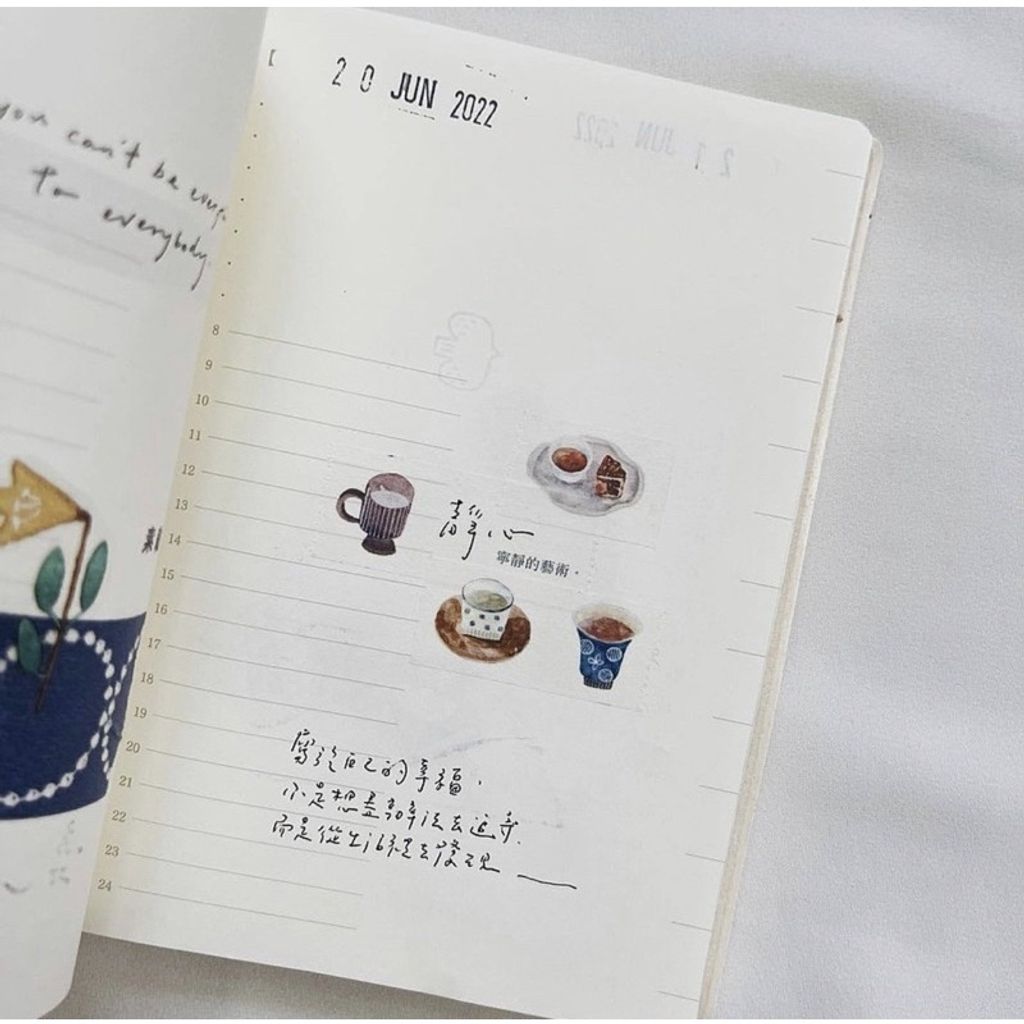 you can't be
to everybody.
20 JUN 2022
8
9
10
11
12
13
14
15
16
17
18
19
20
21
22
23
24
靜心
寧靜的藝術。
屬於自己的幸福，
不是想盡辦法去追尋，
而是從生活裡去發現——